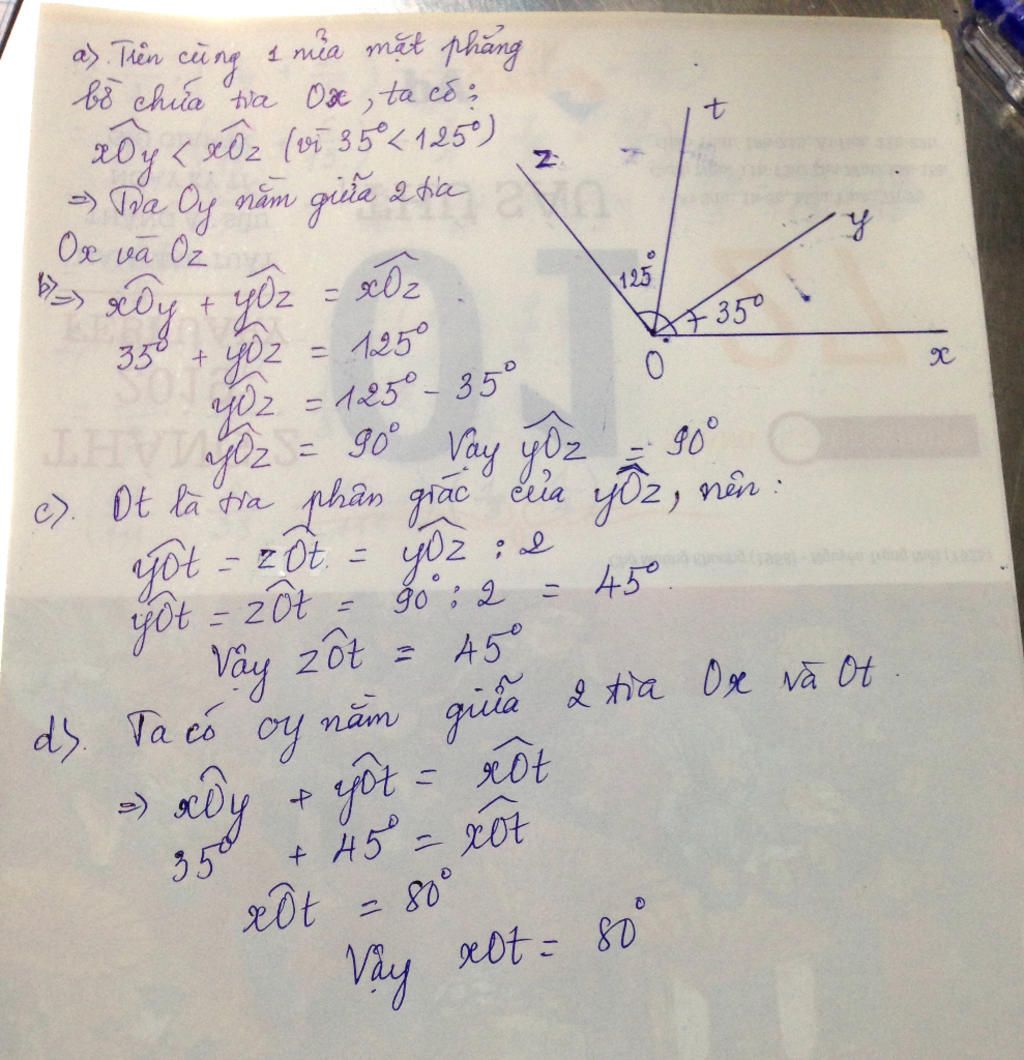 a). Trên cùng 1 nửa mặt phẳng
bờ chứa tia Ox, ta có:
xÔy < xÔz (vì 35° < 125°)
=> Tia Oy nằm giữa 2 tia
Ox và Oz
b) => xÔy + yÔz = xÔz
35° + yÔz = 125°
yÔz = 125° - 35°
yÔz = 90° Vay yÔz = 90°
c). Ot là tia phân giác của yÔz, nên:
yÔt = zÔt = yÔz : 2
yÔt = zÔt = 90° : 2 = 45°
Vậy zÔt = 45°
d). Ta có Oy nằm giữa 2 tia Ox và Ot.
=> xÔy + yÔt = xÔt
35° + 45° = xÔt
xÔt = 80°
Vậy xOt = 80°
t
z
y
125°
35°
O
x